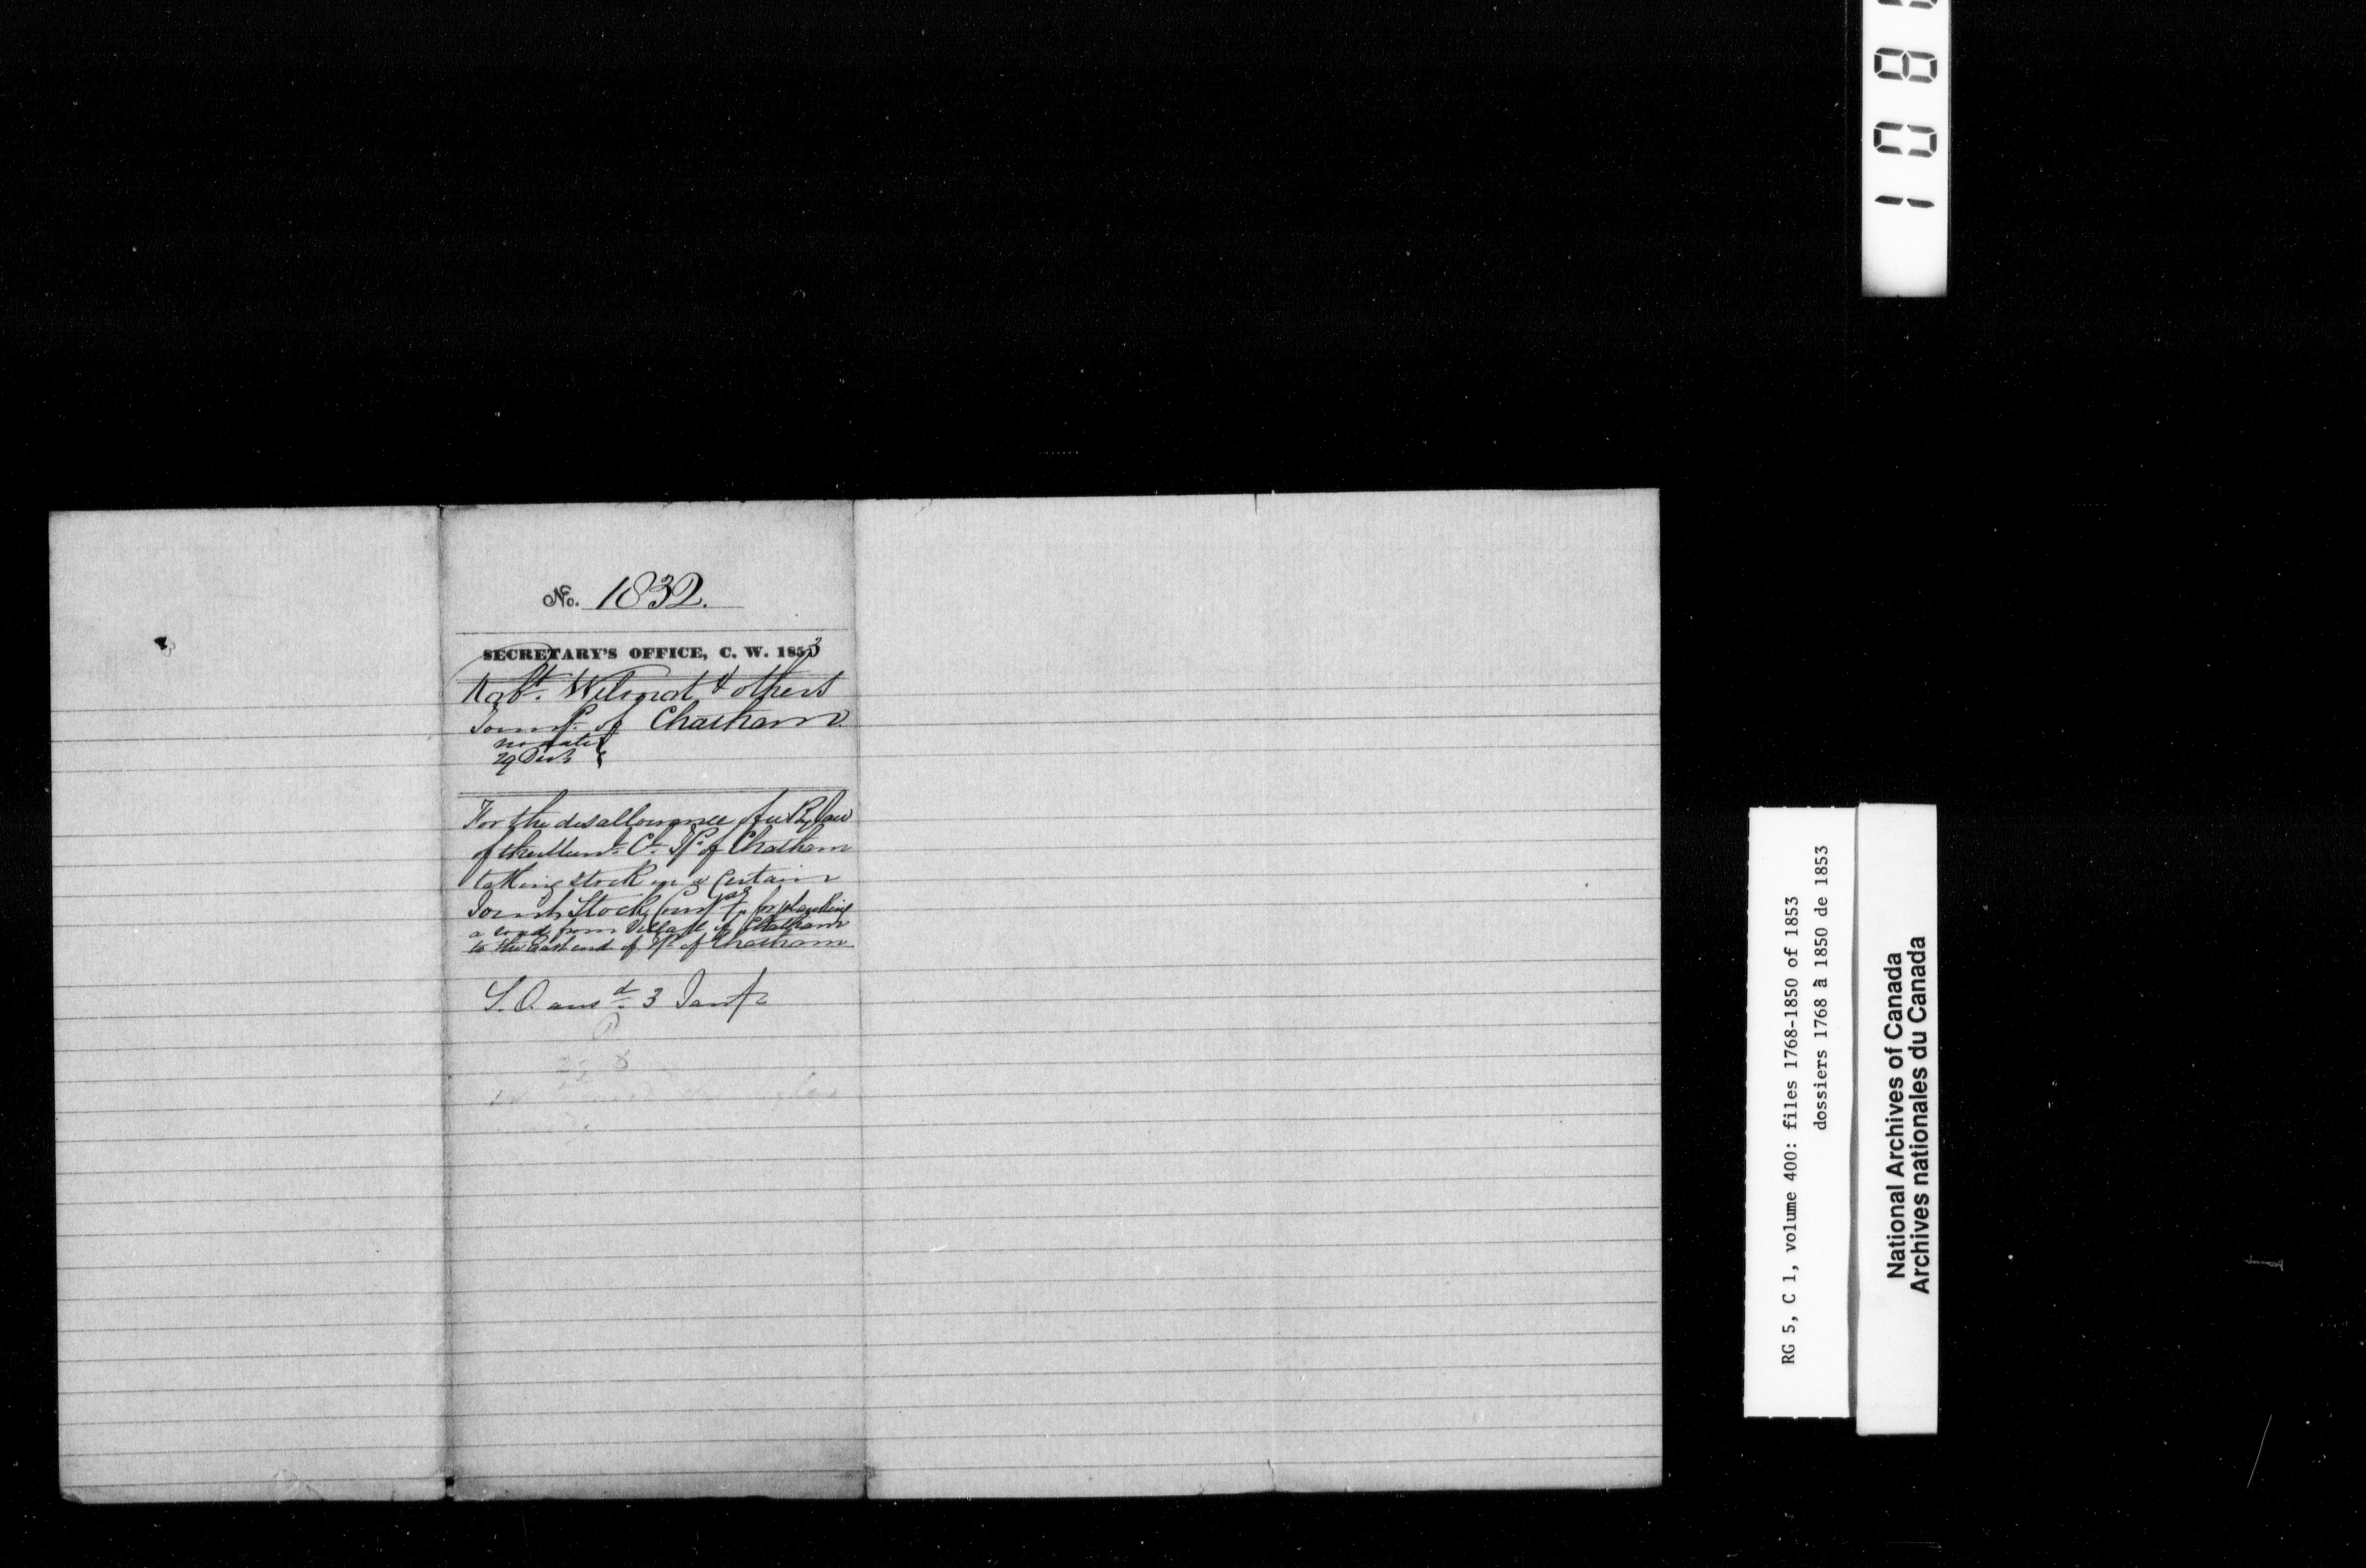 No. 1832.
SECRETARY'S OFFICE, C. W. 1853
Robt. Wilmot & others
Townsp. of Chatham
no date
29 Decr.
For the disallowance of a By Law
of the Munl. Cl. Tp. of Chatham
taking stock in a Certain
Joint Stock Company for planking
a road from Village of Chatham
to the East end of Tp. of Chatham
L. O. ansd. 3 Jany
RG 5, C 1, volume 400: files 1768-1850 of 1853
dossiers 1768 à 1850 de 1853
National Archives of Canada
Archives nationales du Canada
1 0 8